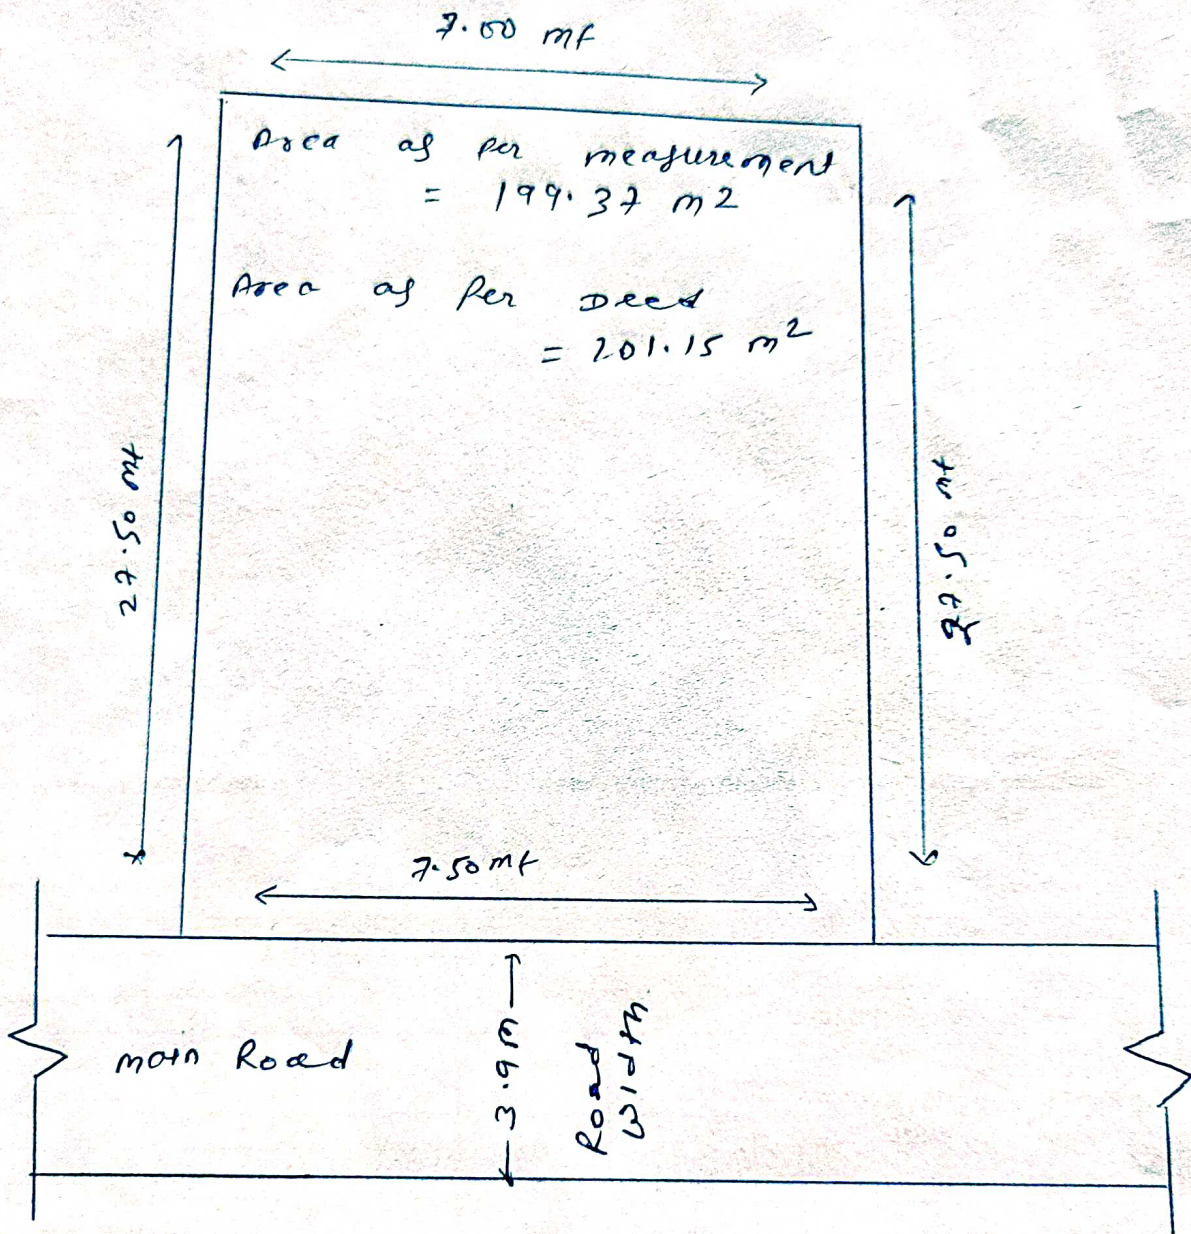 7.00 mt
Area as per measurement
= 199.37 m2
Area as Per Deed
= 201.15 m2
27.50 mt
27.50 mt
7.50 mt
main Road
3.9 m
Road
width